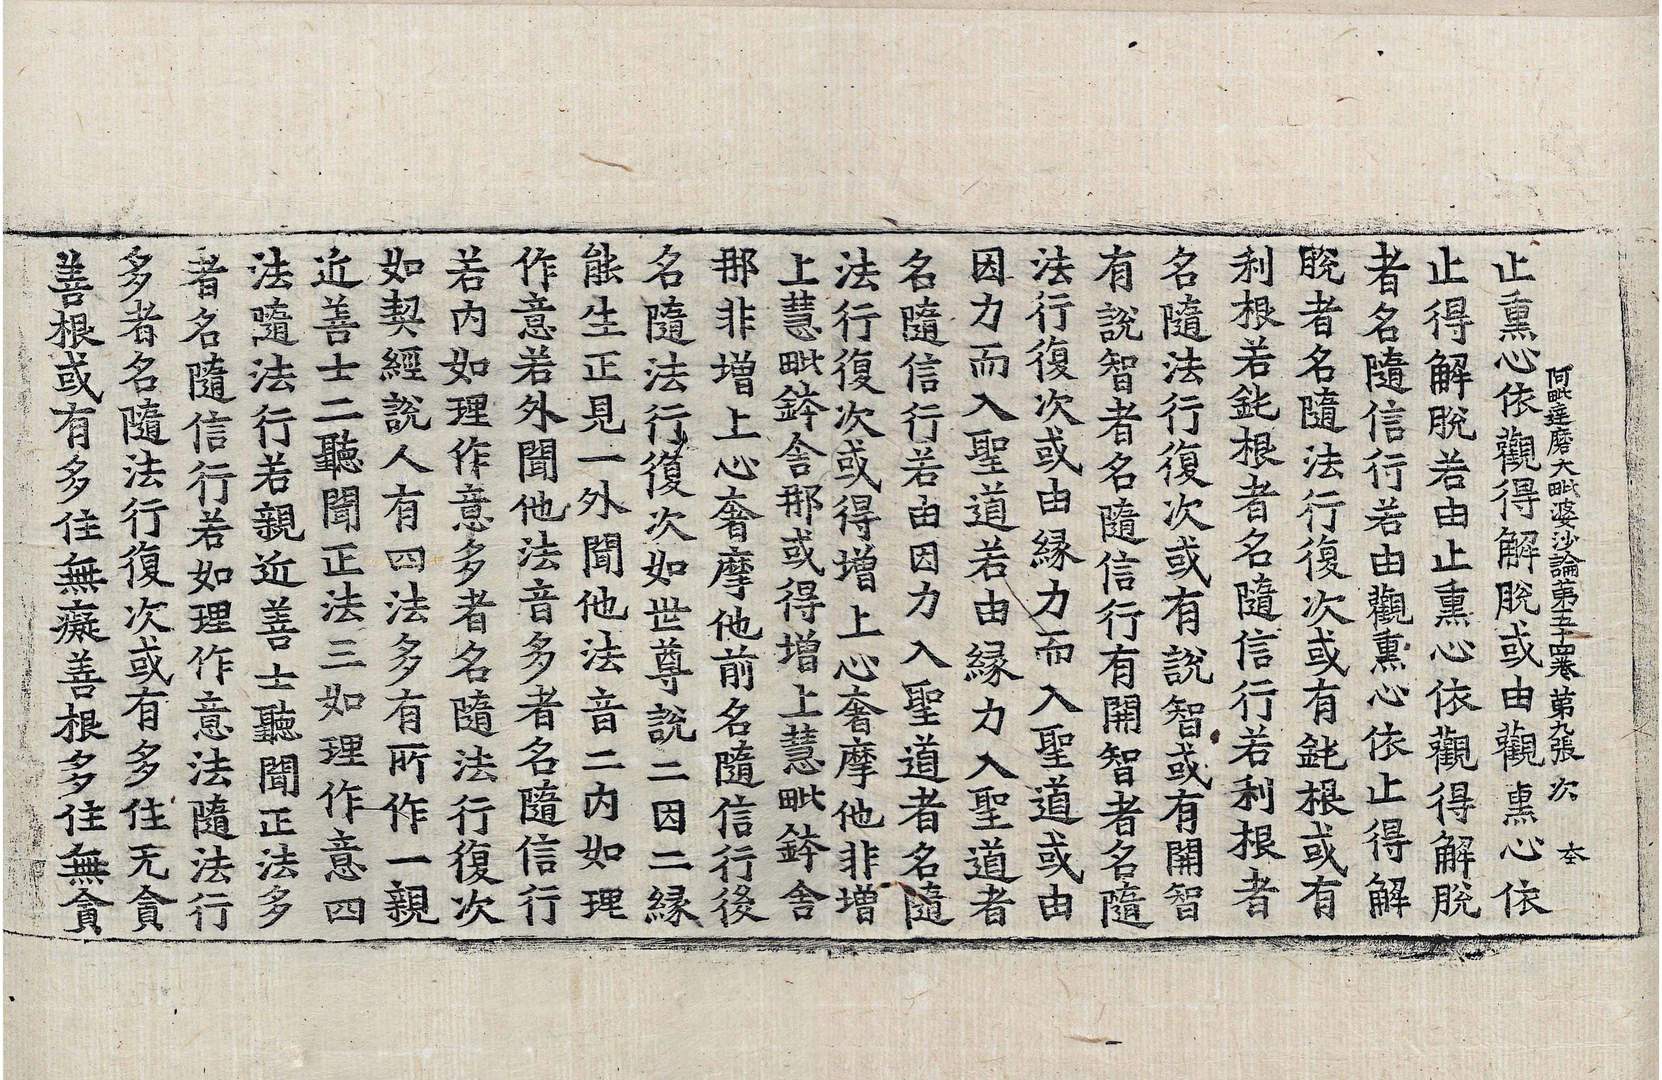 阿毗達磨大毗婆沙論第五十四卷 第九張 次
止熏心依觀得解脫或由觀熏心依
止得解脫若由止熏心依觀得解脫
者名隨信行若由觀熏心依止得解
脫者名隨法行復次或有鈍根或有
利根若鈍根者名隨信行若利根者
名隨法行復次或有說智或有開智
有說智者名隨信行有開智者名隨
法行復次或由緣力而入聖道或由
因力而入聖道若由緣力入聖道者
名隨信行若由因力入聖道者名隨
法行復次或得增上心奢摩他非增
上慧毗鉢舍那或得增上慧毗鉢舍
那非增上心奢摩他前名隨信行後
名隨法行復次如世尊說二因二緣
能生正見一外聞他法音二內如理
作意若外聞他法音多者名隨信行
若內如理作意多者名隨法行復次
如契經說人有四法多有所作一親
近善士二聽聞正法三如理作意四
法隨法行若親近善士聽聞正法多
者名隨信行若如理作意法隨法行
多者名隨法行復次或有多住无貪
善根或有多住無癡善根多住無貪